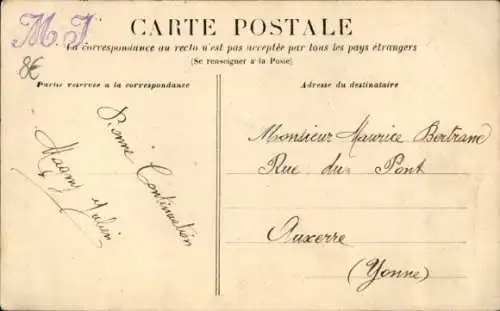 M. J.
8€
CARTE POSTALE
La correspondance au recto n'est pas acceptée par tous les pays étrangers
(Se renseigner à la Poste)
Partie réservée à la correspondance
Adresse du destinataire
Bonne Continuation
Julien
Monsieur Maurice Bertrand
Rue du Pont
Auxerre
(Yonne)